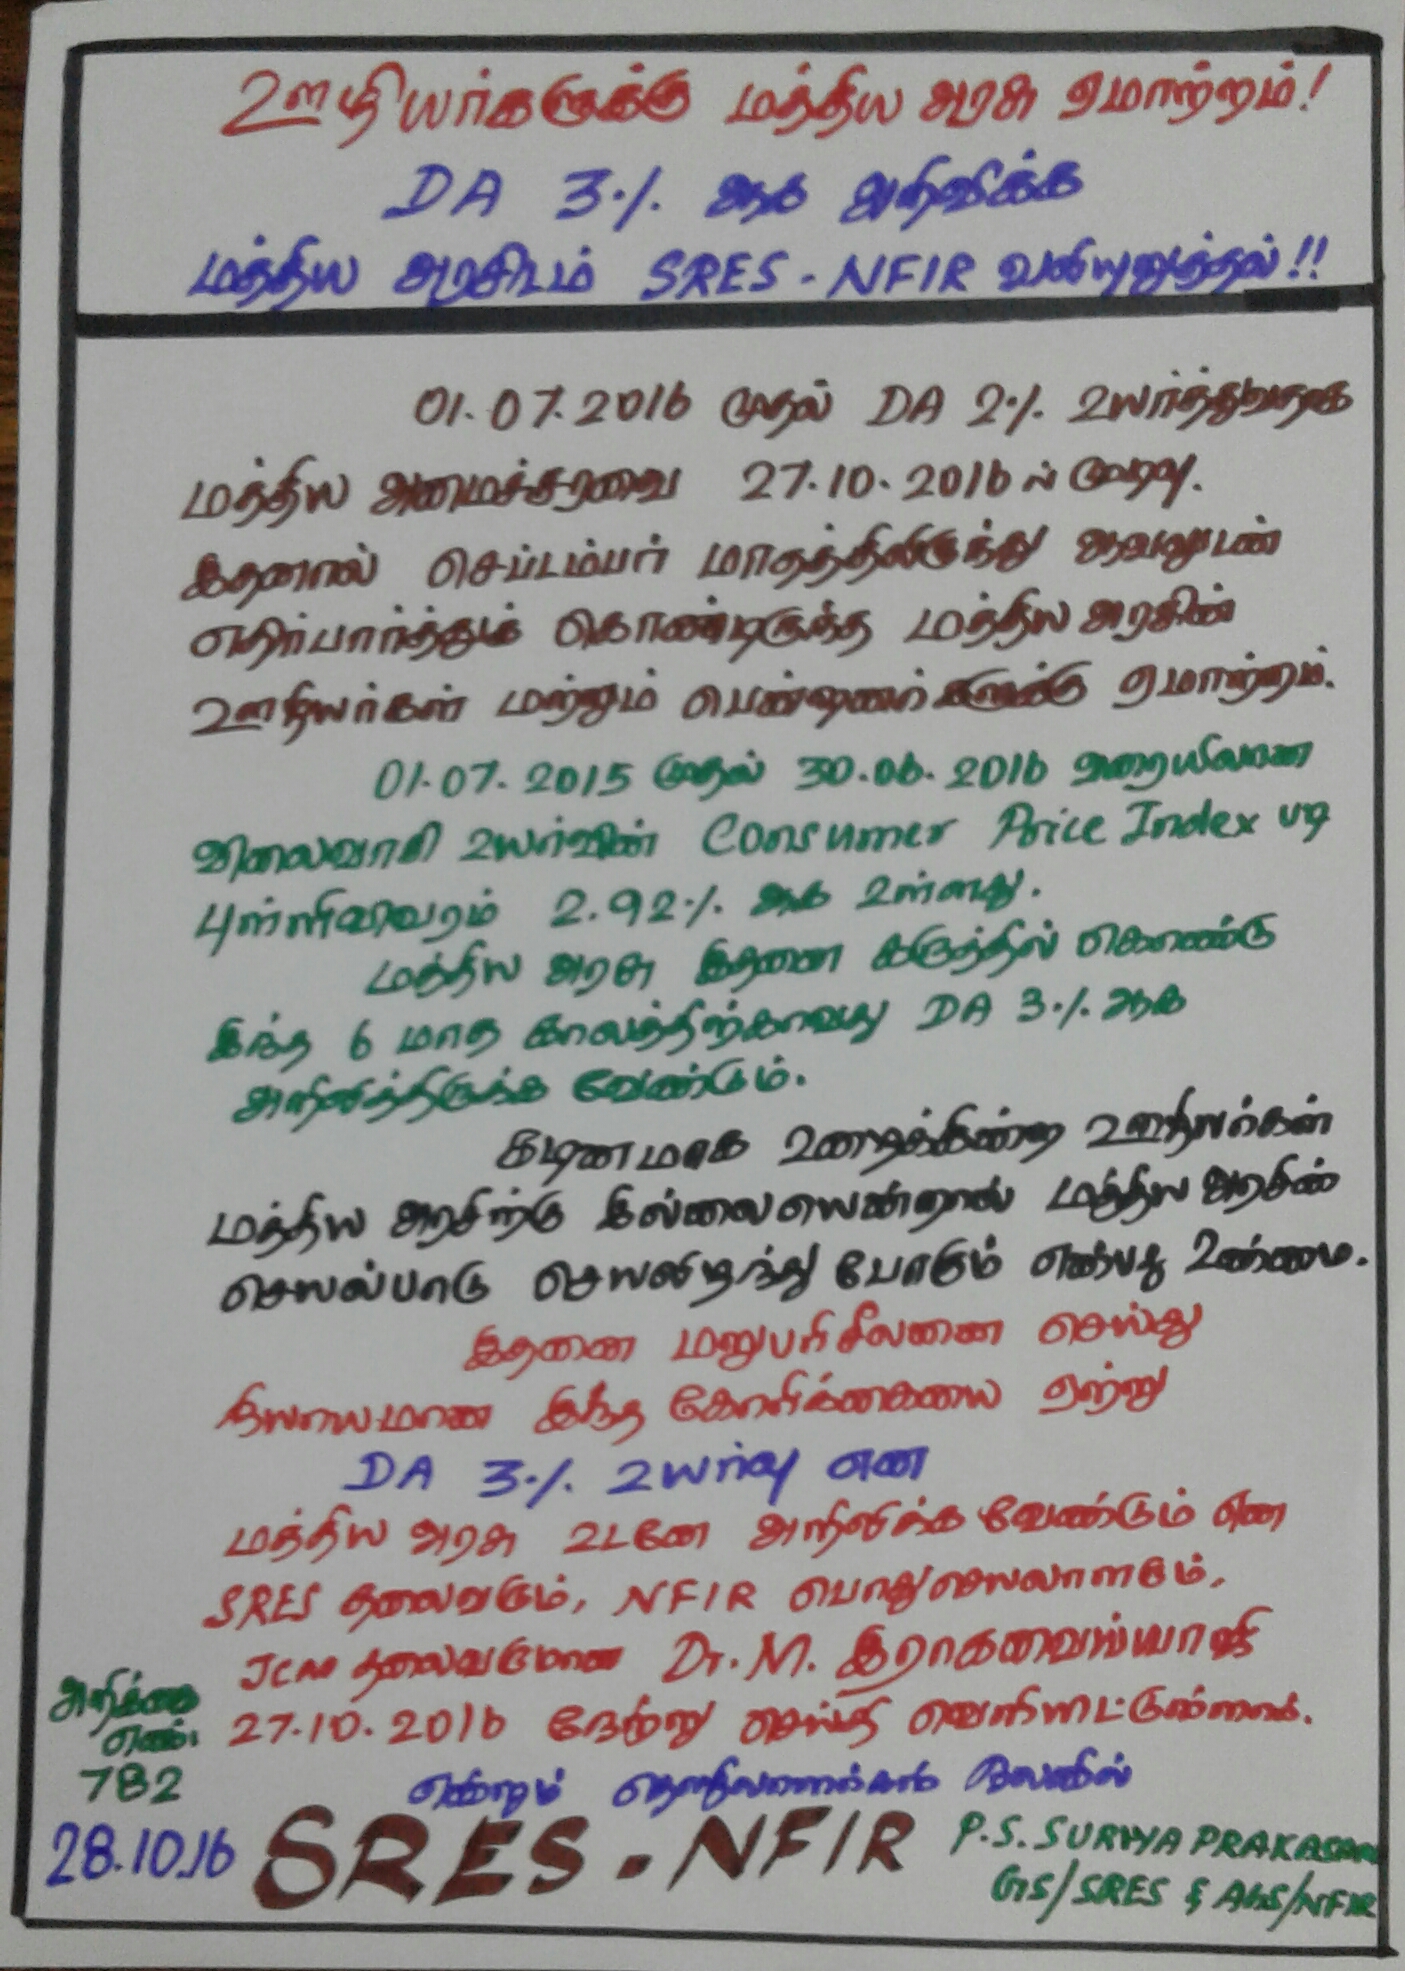 ஊழியர்களுக்கு மத்திய அரசு ஏமாற்றம்!
DA 3% ஆக அறிவிக்க
மத்திய அரசிடம் SRES - NFIR வலியுறுத்தல்!!
01.07.2016 முதல் DA 2% உயர்த்துவதாக
மத்திய அமைச்சரவை 27.10.2016ல் முடிவு.
இதனால் செப்டம்பர் மாதத்திலிருந்து ஆவலுடன்
எதிர்பார்த்துக் கொண்டிருந்த மத்திய அரசின்
ஊழியர்கள் மற்றும் பென்ஷனர்களுக்கு ஏமாற்றம்.
01.07.2015 முதல் 30.06.2016 வரையிலான
விலைவாசி உயர்வின் Consumer Price Index படி
புள்ளிவிவரம் 2.92% ஆக உள்ளது.
மத்திய அரசு இதனை கருத்தில் கொண்டு
இந்த 6 மாத காலத்திற்காவது DA 3% ஆக
அறிவித்திருக்க வேண்டும்.
கடினமாக உழைக்கின்ற ஊழியர்கள்
மத்திய அரசிற்கு இல்லையென்றால் மத்திய அரசின்
செயல்பாடு செயலிழந்து போகும் என்பது உண்மை.
இதனை மறுபரிசீலனை செய்து
நியாயமான இந்த கோரிக்கையை ஏற்று
DA 3% உயர்வு என
மத்திய அரசு உடனே அறிவிக்க வேண்டும் என
SRES தலைவரும், NFIR பொதுசெயலாளரும்,
JCM தலைவருமான Dr. M. இராகவைய்யாஜி
27.10.2016 நேற்று செய்தி வெளியிட்டுள்ளார்.
அறிக்கை
எண்:
782
28.10.16
என்றும் தொழிலாளர்கள் நலனில்
SRES - NFIR
P.S. SURYA PRAKASAM
GS/SRES & AGS/NFIR